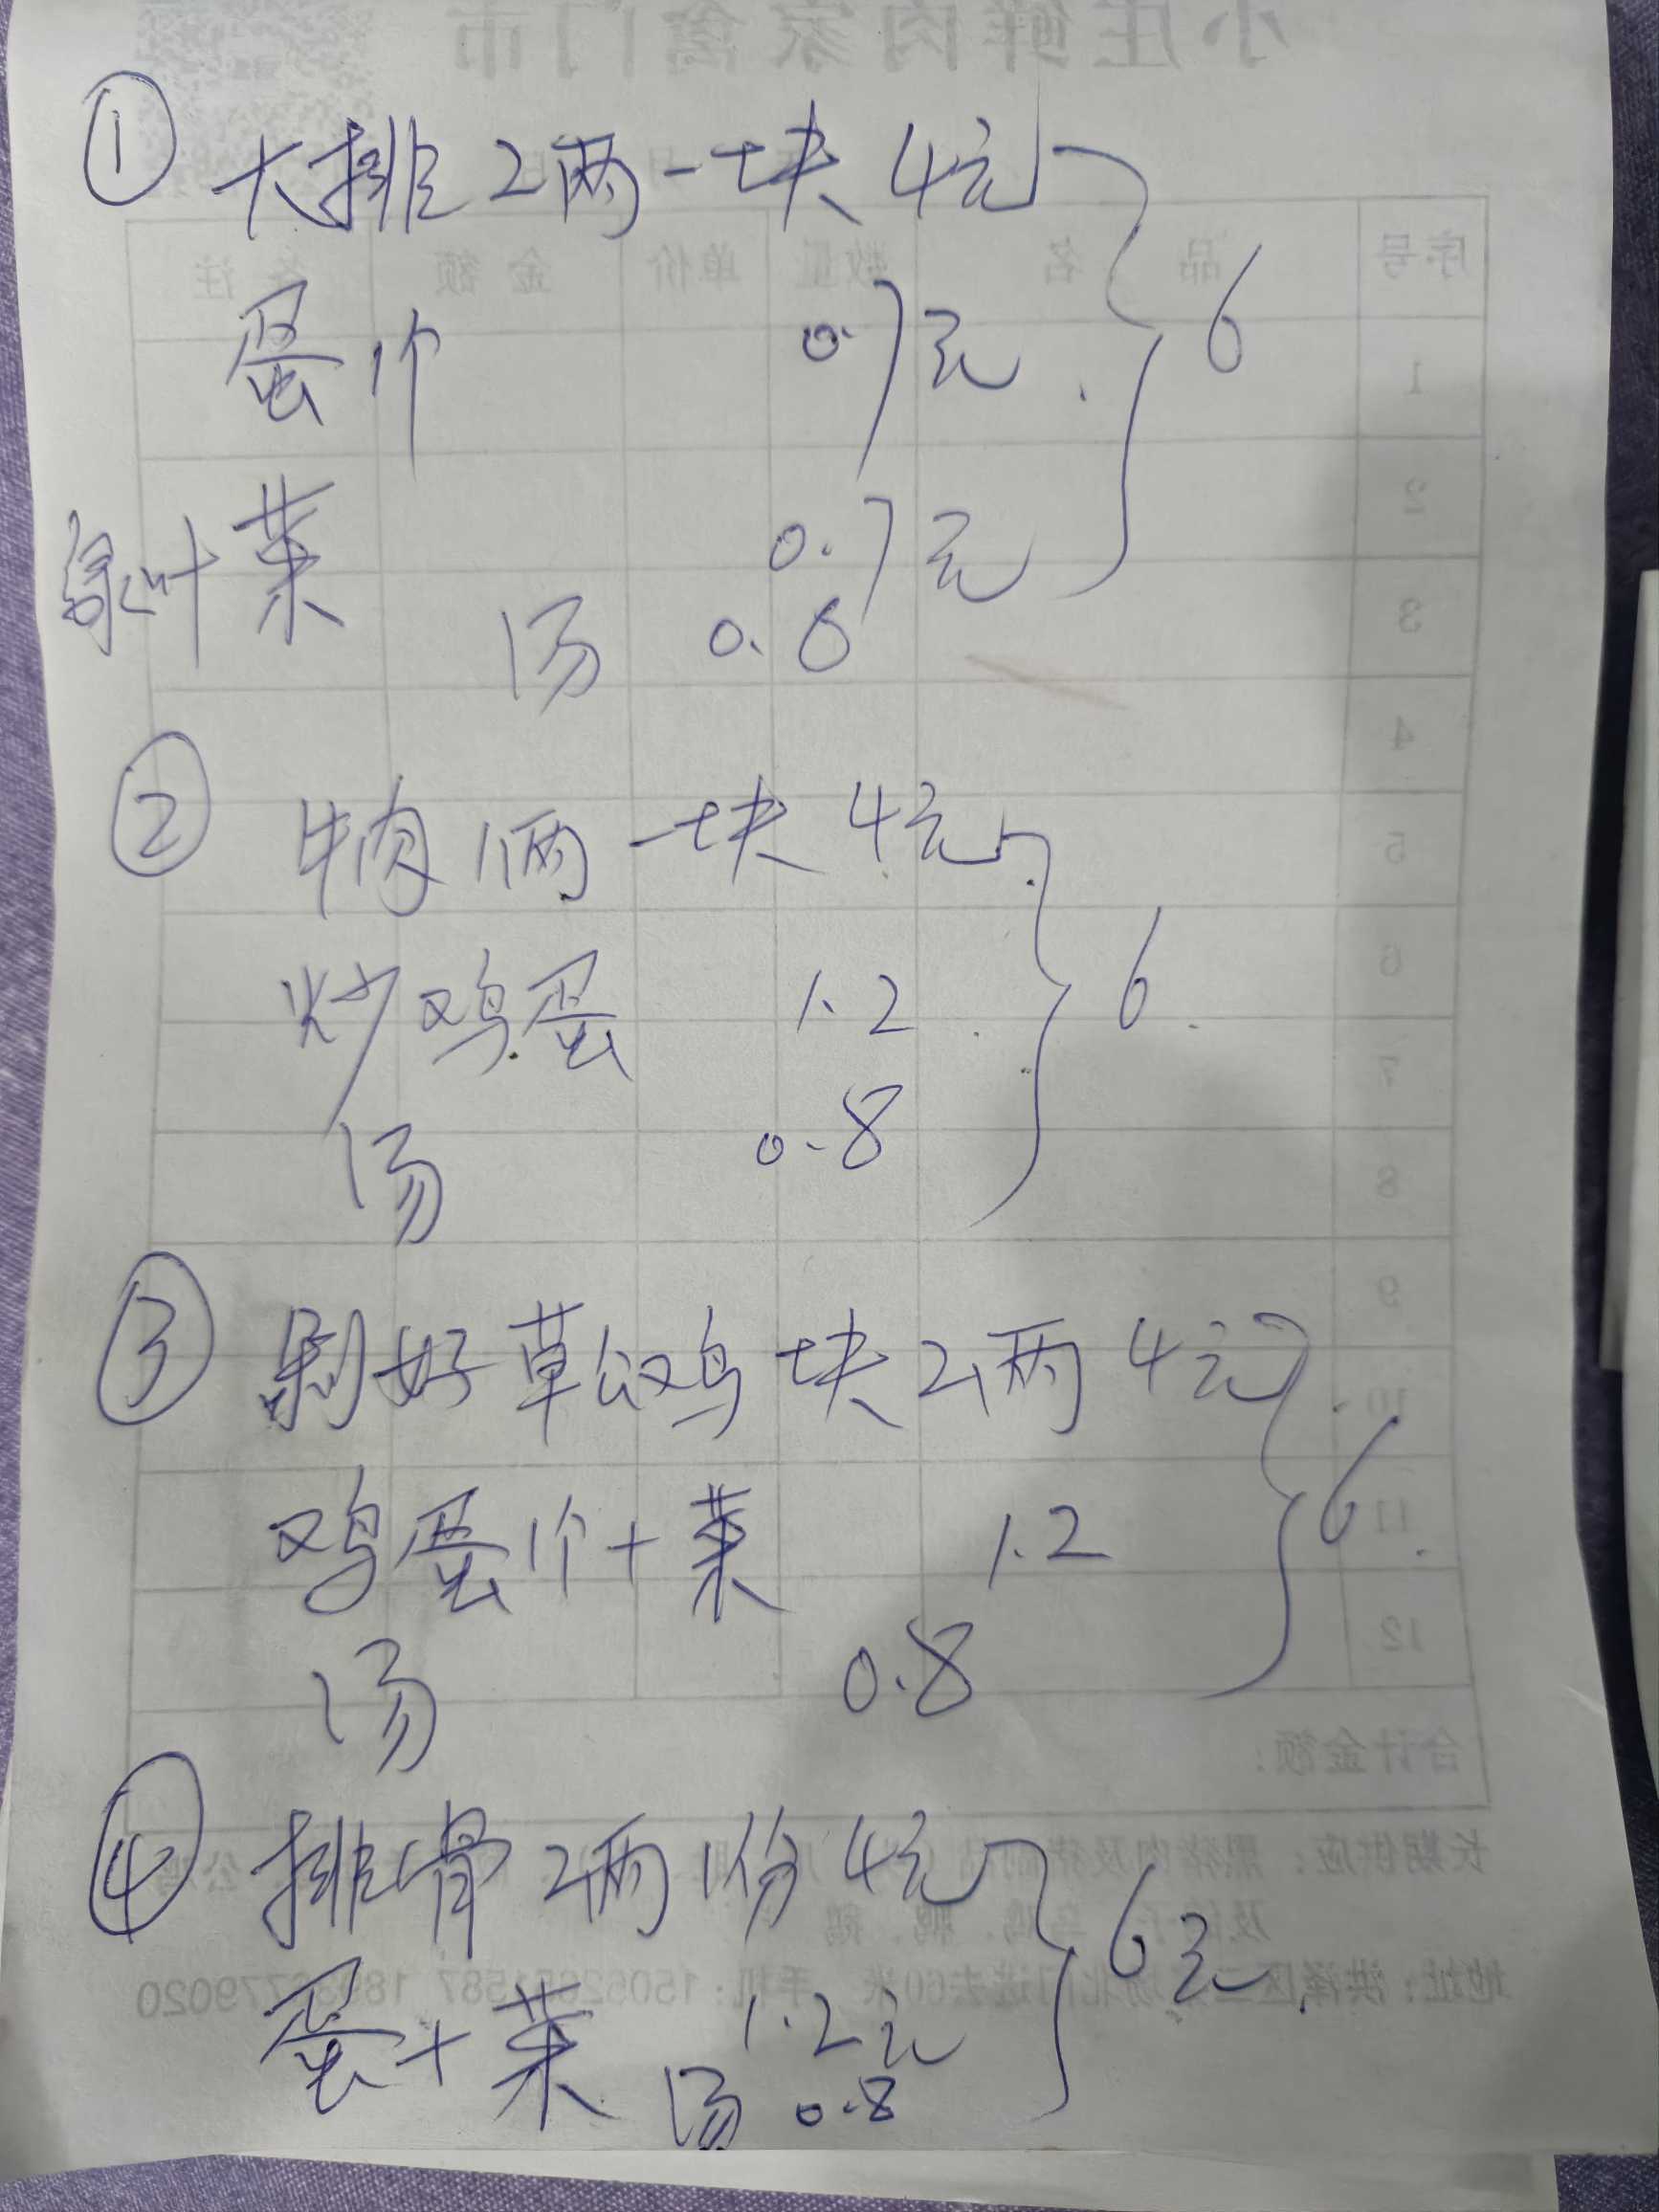 小庄鲜肉家禽门市
① 大排2两一块 4元 } 6
蛋1个 0.7元
绿叶菜 0.7元
汤 0.6
② 牛肉1两一块 4元 } 6
炒鸡蛋 1.2
汤 0.8
③ 剁好草公鸡块2两 4元 } 6
鸡蛋1个+菜 1.2
汤 0.8
④ 排骨2两1份 4元 } 6元
蛋+菜 1.2元
汤 0.8
序号 品名 数量 单价 金额 备注
1
2
3
4
5
6
7
8
9
10
11
12
合计金额：
长期供应：黑猪肉及
鸭、鹅
地址：洪泽区 北门进去60米 手机：